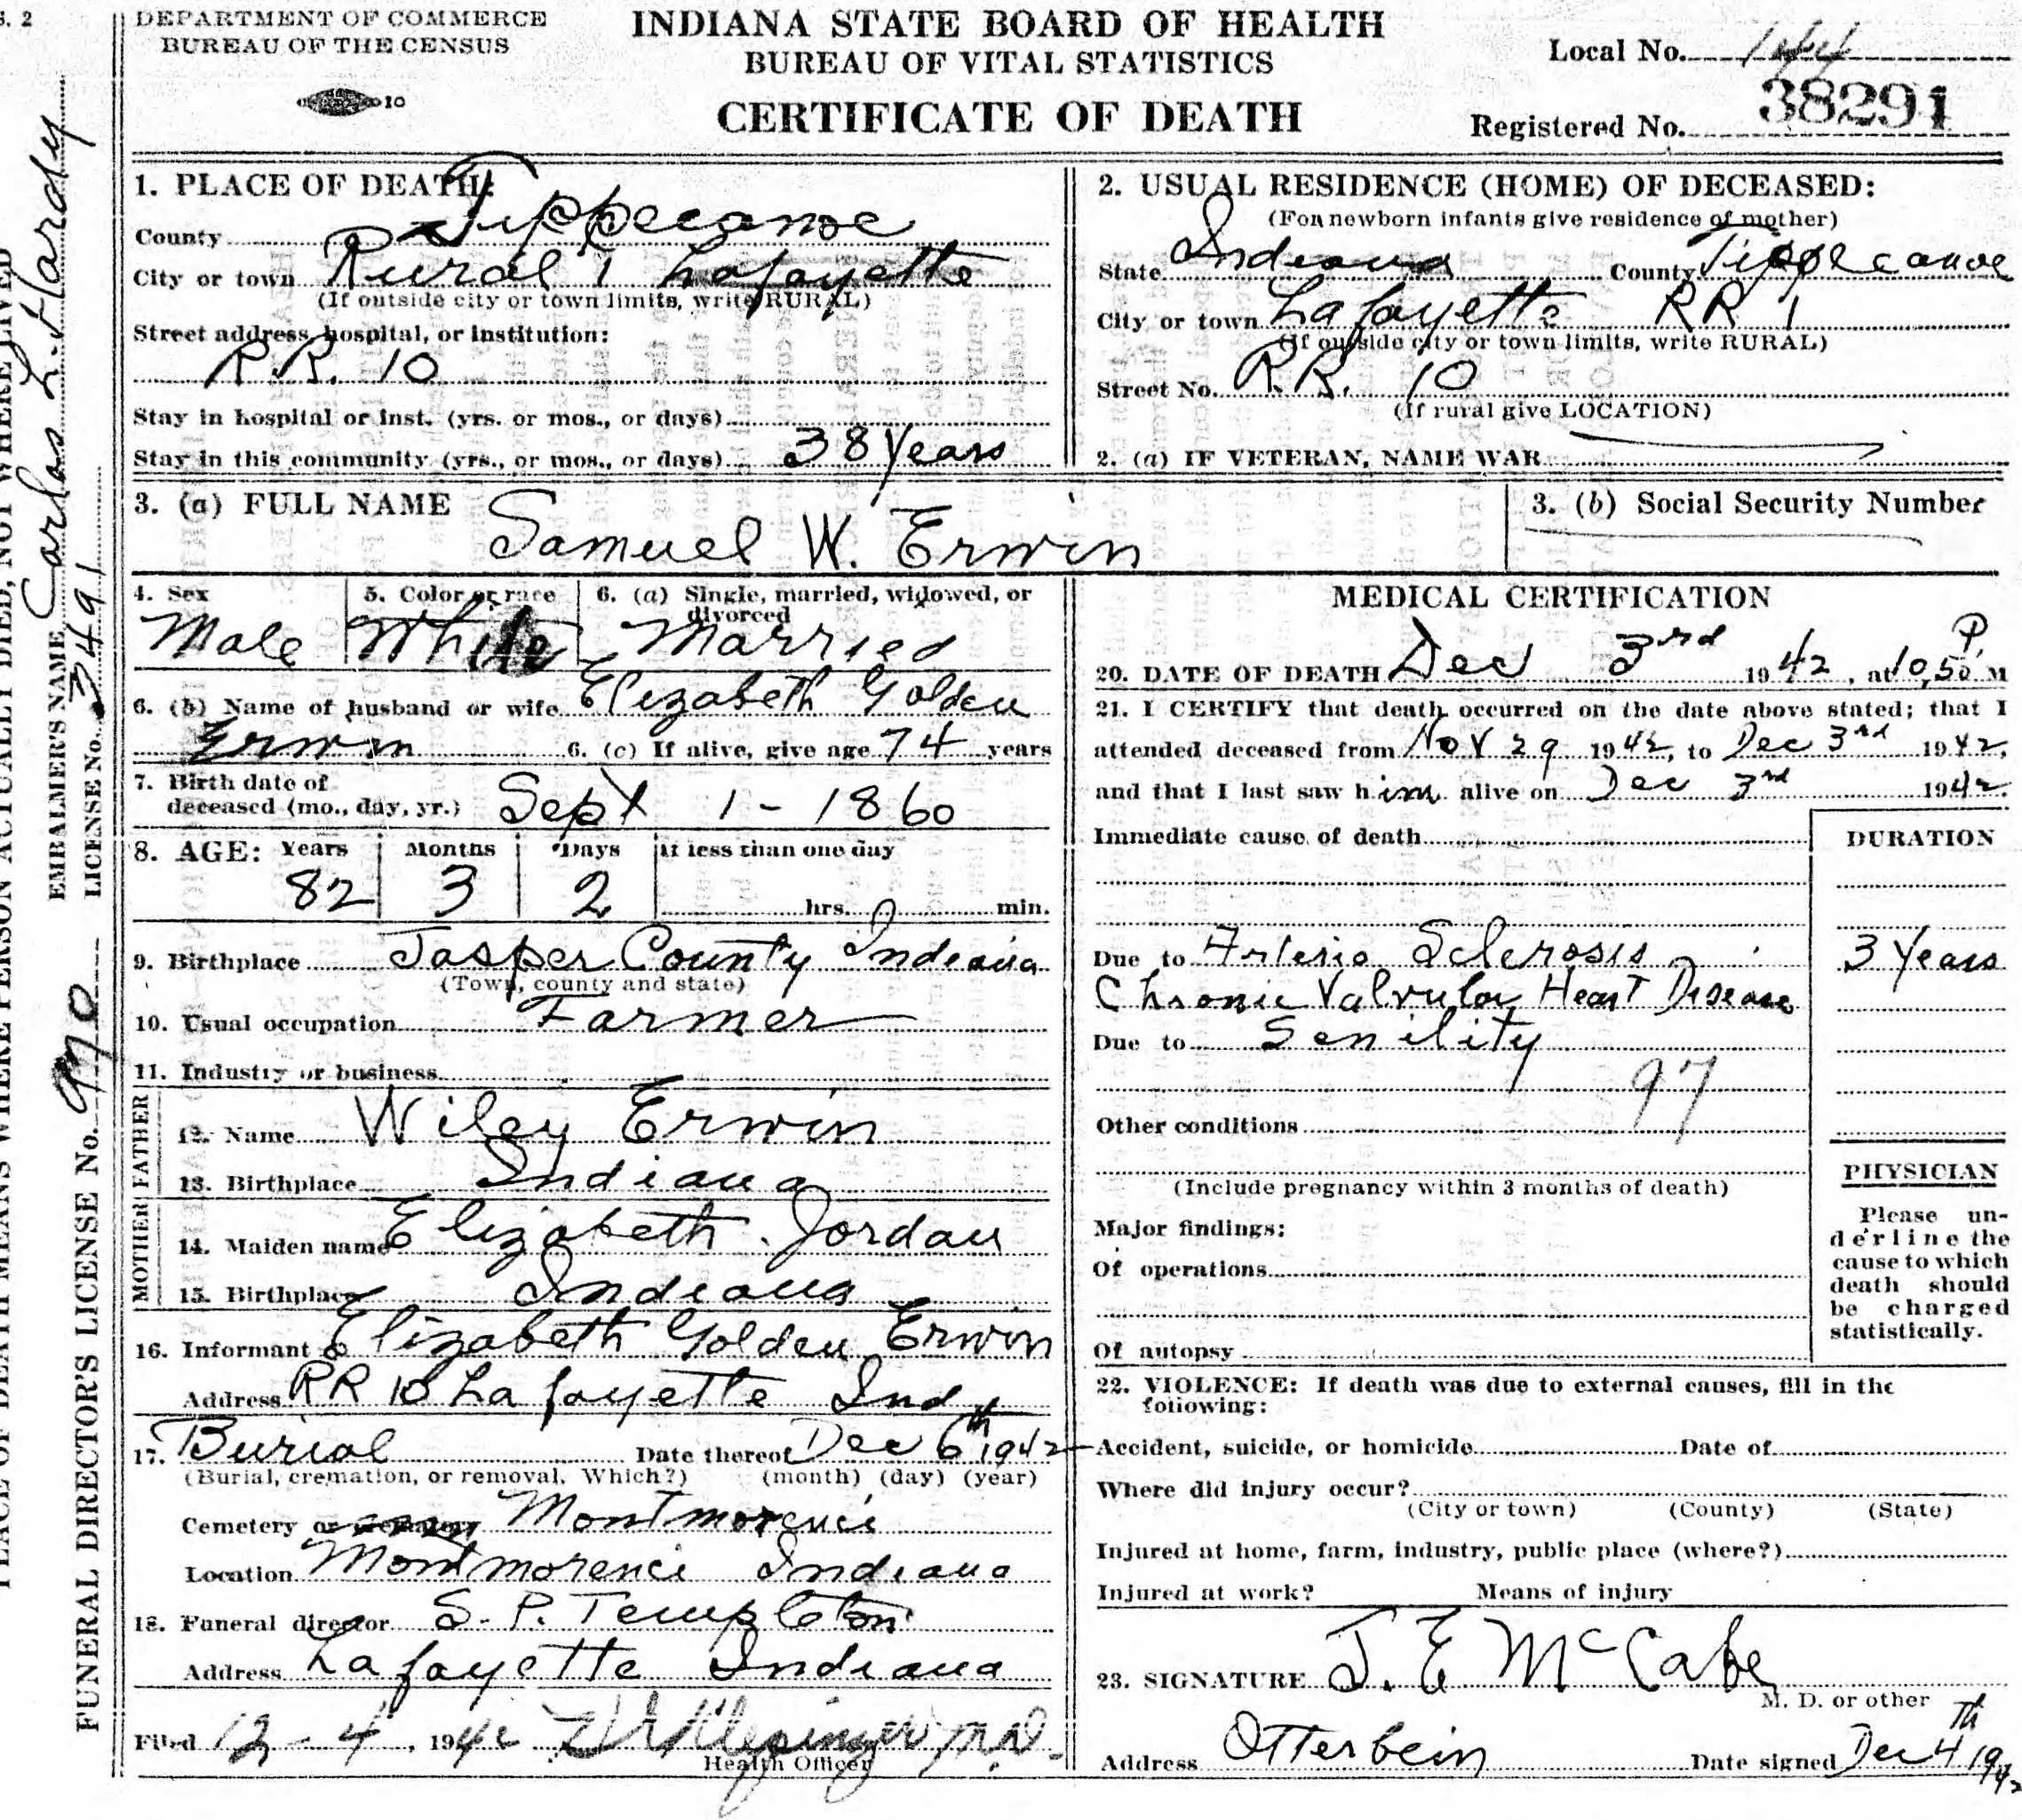 S. 2
DEPARTMENT OF COMMERCE
BUREAU OF THE CENSUS
10
INDIANA STATE BOARD OF HEALTH
BUREAU OF VITAL STATISTICS
CERTIFICATE OF DEATH
Local No. 144
Registered No. 38291
1. PLACE OF DEATH:
County Tippecanoe
City or town Rural 1 Lafayette
(If outside city or town limits, write RURAL)
Street address, hospital, or institution:
R.R. 10
Stay in hospital or inst. (yrs. or mos., or days)
Stay in this community (yrs., or mos., or days) 38 Years
2. USUAL RESIDENCE (HOME) OF DECEASED:
(For newborn infants give residence of mother)
State Indiana County Tippecanoe
City or town Lafayette RR 1
(If outside city or town limits, write RURAL)
Street No. R.R. 10
(If rural give LOCATION)
2. (a) IF VETERAN, NAME WAR
3. (a) FULL NAME Samuel W. Erwin
3. (b) Social Security Number
4. Sex Male
5. Color or race White
6. (a) Single, married, widowed, or divorced Married
6. (b) Name of husband or wife Elizabeth Golden
Erwin 6. (c) If alive, give age 74 years
7. Birth date of
deceased (mo., day, yr.) Sept 1 - 1860
8. AGE: Years Months Days If less than one day
82 3 2 hrs. min.
9. Birthplace Jasper County Indiana
(Town, county and state)
10. Usual occupation Farmer
11. Industry or business
FATHER
12. Name Wiley Erwin
13. Birthplace Indiana
MOTHER
14. Maiden name Elizabeth Jordan
15. Birthplace Indiana
16. Informant Elizabeth Golden Erwin
Address RR 10 Lafayette Ind
17. Burial Date thereof Dec 6th 1942
(Burial, cremation, or removal. Which?) (month) (day) (year)
Cemetery or crematory Montmorenci
Location Montmorenci Indiana
18. Funeral director S. P. Templeton
Address Lafayette Indiana
Filed 12 - 4, 1942 Klepinger M.D.
Health Officer
MEDICAL CERTIFICATION
20. DATE OF DEATH Dec 3rd 1942, at 10,50 P. M
21. I CERTIFY that death occurred on the date above stated; that I
attended deceased from Nov 29 1942, to Dec 3rd 1942,
and that I last saw him alive on Dec 3rd 1942.
Immediate cause of death
DURATION
Due to Arterio Sclerosis 3 Years
Chronic Valvular Heart Disease
Due to Senility
97
Other conditions
(Include pregnancy within 3 months of death)
Major findings:
Of operations
Of autopsy
PHYSICIAN
Please un-
derline the
cause to which
death should
be charged
statistically.
22. VIOLENCE: If death was due to external causes, fill in the
following:
Accident, suicide, or homicide Date of
Where did injury occur?
(City or town) (County) (State)
Injured at home, farm, industry, public place (where?)
Injured at work? Means of injury
23. SIGNATURE J. E McCabe
M. D. or other
Address Otterbein Date signed Dec 4th 1942
EMBALMER'S NAME Carlos L. Hardy
LICENSE No. 3491
FUNERAL DIRECTOR'S LICENSE No. 970
PLACE OF DEATH MEANS WHERE PERSON ACTUALLY DIED, NOT WHERE LIVED